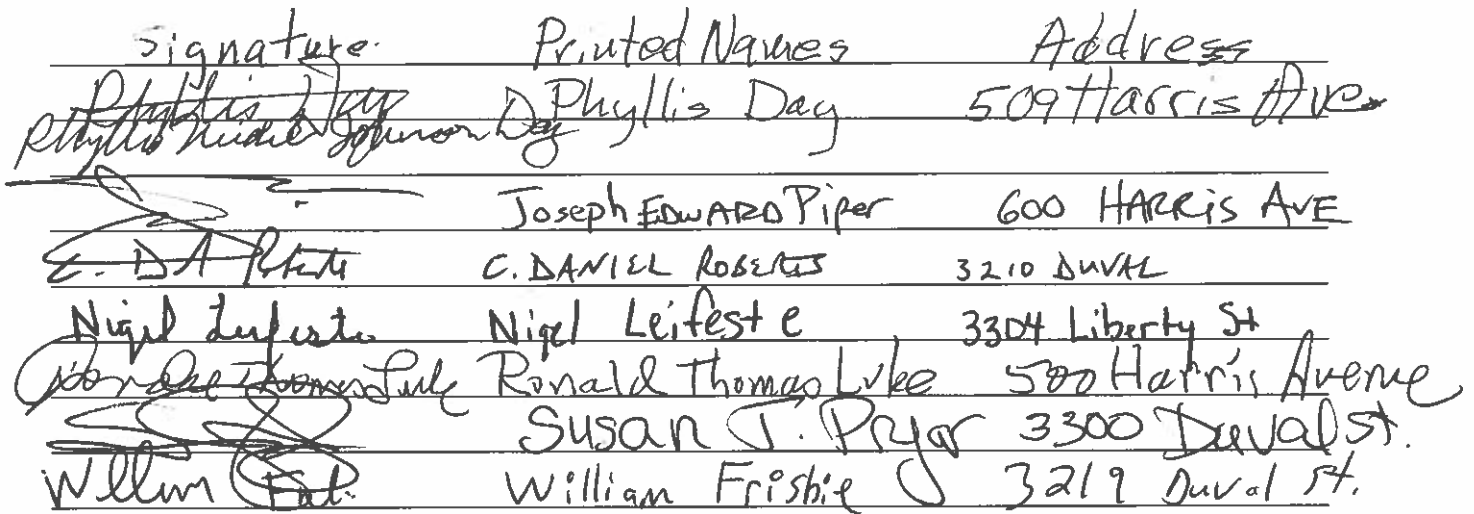 Signature. Printed Names Address
Phyllis Day Phyllis Day 509 Harris Ave
Phyllis Johnson Day
Joseph EDWARD Piper 600 HARRIS AVE
C. DANIEL ROBERTS 3210 DUVAL
Nigel Leifeste Nigel Leifeste 3304 Liberty St
Ronald Thomas Luke Ronald Thomas Luke 500 Harris Avenue
Susan T. Pryor 3300 Duval St.
William Frisbie 3219 Duval St.